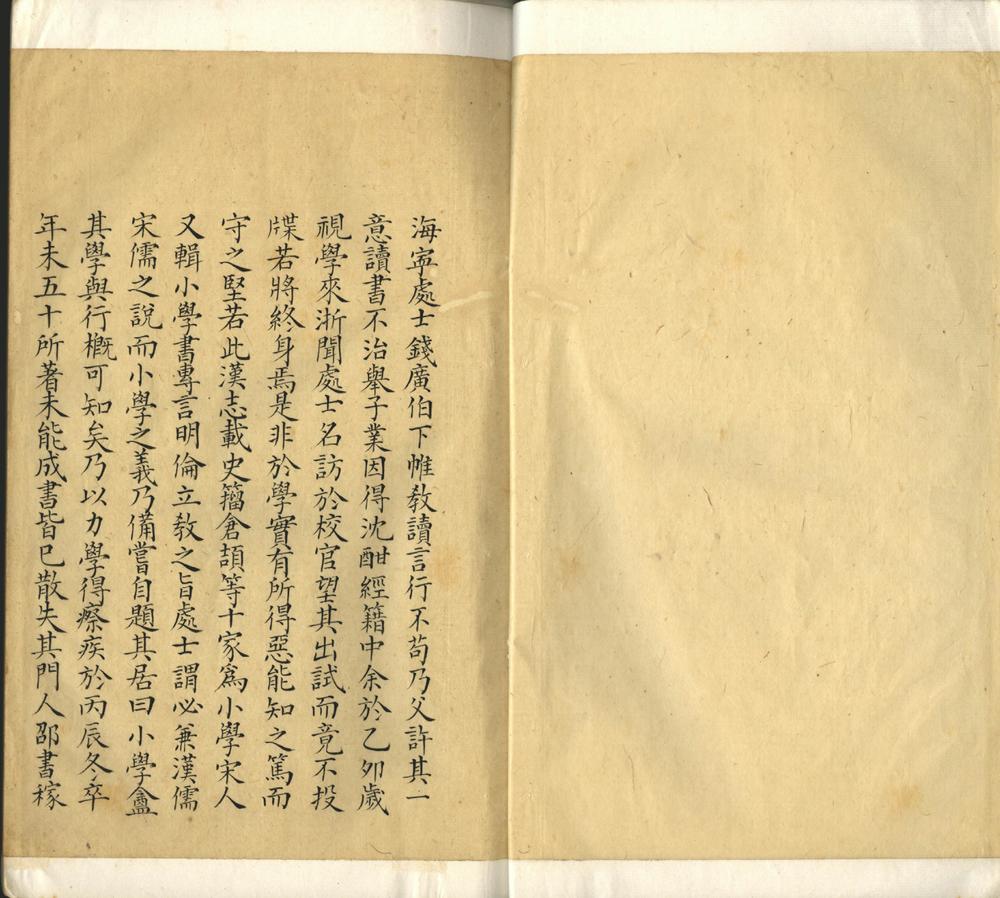 海寧處士錢廣伯下帷教讀言行不苟乃父許其一
意讀書不治舉子業因得沈酣經籍中余於乙夘歲
視學來浙聞處士名訪於校官望其出試而竟不投
牒若將終身焉是非於學實有所得惡能知之篤而
守之堅若此漢志載史籀倉頡等十家爲小學宋人
又輯小學書專言明倫立教之旨處士謂必兼漢儒
宋儒之說而小學之義乃備嘗自題其居曰小學盦
其學與行概可知矣乃以力學得瘵疾於丙辰冬卒
年未五十所著未能成書皆已散失其門人邵書稼